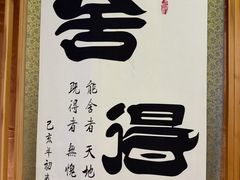 舍
得
能舍者天地
既得者無愧
己亥年初